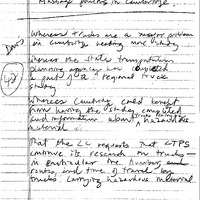 Whereas trucks are a major problem
in Cambridge and
Whereas the state transportation
planning agency has completed
a part of a regional truck
study
Whereas Cambridge could benefit
from having the studies completed
such information about trucks carrying hazardous
material
That the CC requests that CTPS
continue its research on trucks
in particular the number and
routes, and time of travel by
trucks carrying hazardous material